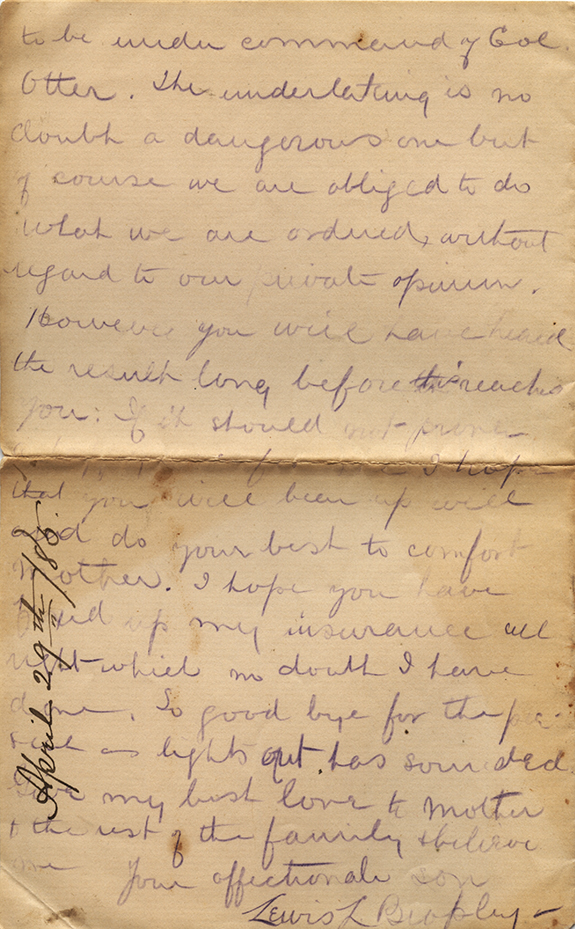 to be under command of Col
Otter. The undertaking is no
doubt a dangerous one but
of course we are obliged to do
what we are ordered, without
regard to our private opinion.
However you will have heard
the result long before this reaches
you: If it should not prove
I hope
that you will bear up well
and do your best to comfort
Mother. I hope you have
fixed up my insurance all
right which no doubt I have
done. So good bye for the pre-
sent as lights out has sounded.
Give my best love to Mother
& the rest of the family & believe
me Your affectionate son
Lewis L
April 29th /85